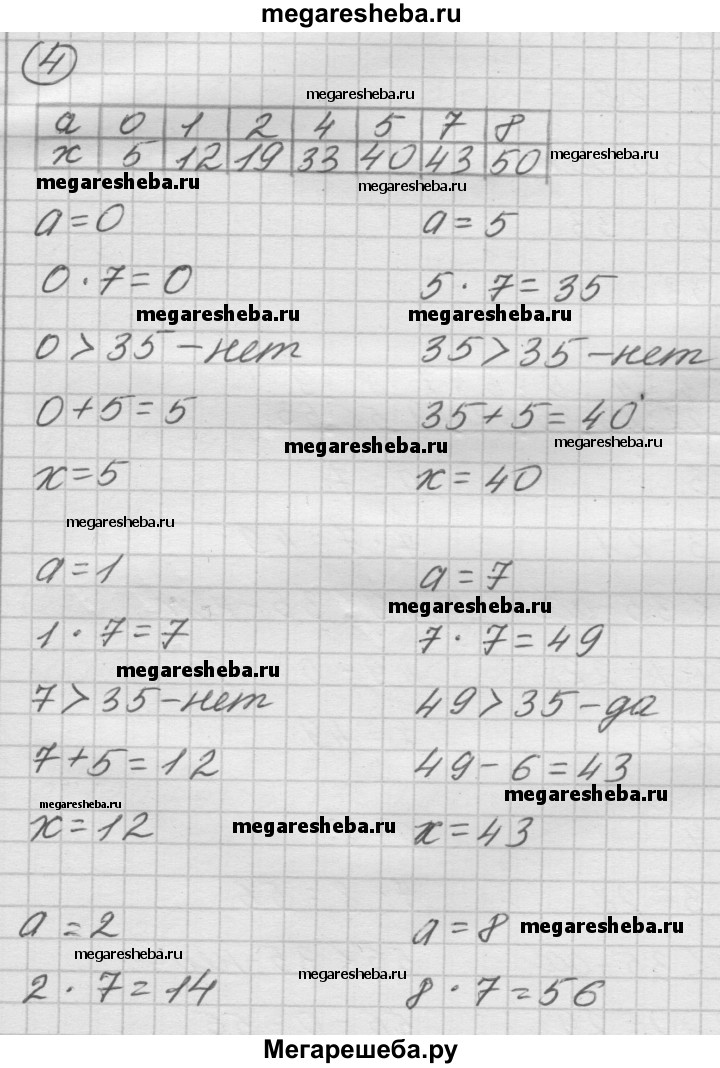 megaresheba.ru
4
megaresheba.ru
a 0 1 2 4 5 7 8
x 5 12 19 33 40 43 50
megaresheba.ru
megaresheba.ru
megaresheba.ru
a = 0
0 · 7 = 0
megaresheba.ru
0 > 35 – нет
0 + 5 = 5
megaresheba.ru
x = 5
megaresheba.ru
a = 5
5 · 7 = 35
megaresheba.ru
35 > 35 – нет
35 + 5 = 40
megaresheba.ru
x = 40
a = 1
1 · 7 = 7
megaresheba.ru
7 > 35 – нет
7 + 5 = 12
megaresheba.ru
x = 12
megaresheba.ru
a = 7
megaresheba.ru
7 · 7 = 49
49 > 35 – да
49 – 6 = 43
megaresheba.ru
x = 43
a = 2
megaresheba.ru
2 · 7 = 14
a = 8
megaresheba.ru
megaresheba.ru
8 · 7 = 56
Мегарешеба.ру